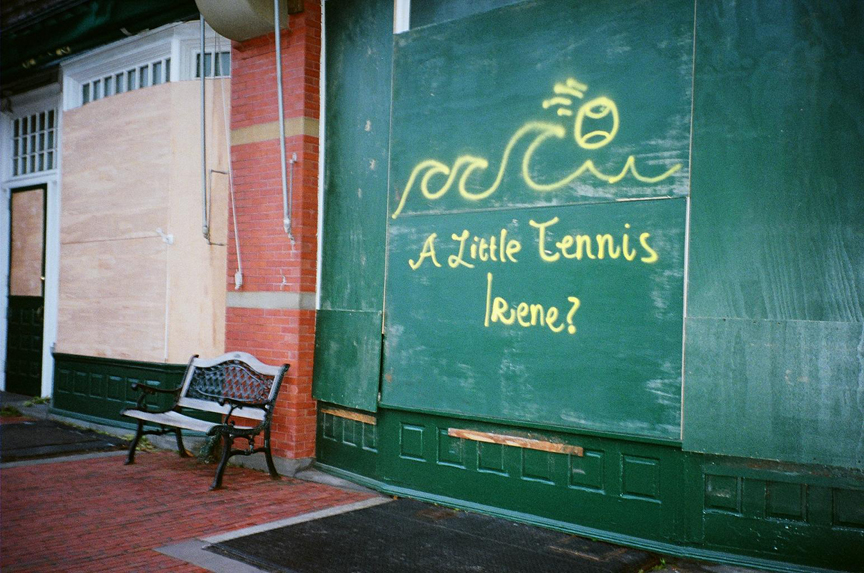 A Little Tennis
Irene?